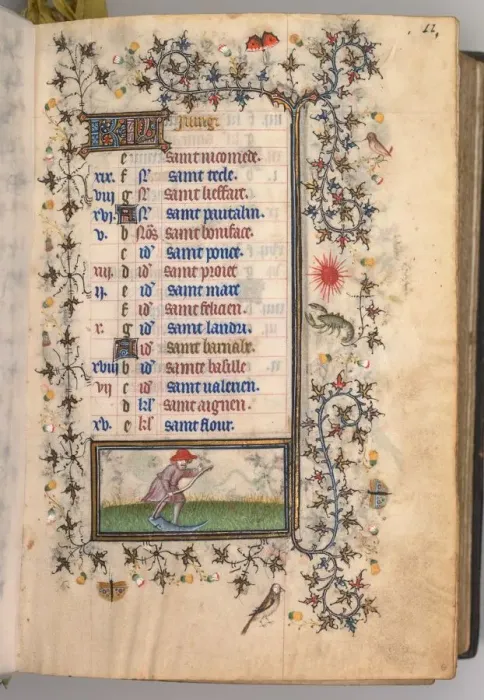 12,
KL Juing
e saint nicomede.
xix. f N' saint tede.
viij g N' saint lieffart.
xvj. A N' saint pantalin.
v. b Nōs saint boniface.
c id' saint ponce.
xiij. d id' saint
ij. e id' saint mart
f id' saint felicien.
x. g id' saint landri.
A id' saint barnabe.
xviij b id' sainte basille
vij c id' saint valerien.
d kl' saint aignen.
xv. e kl' saint flour.